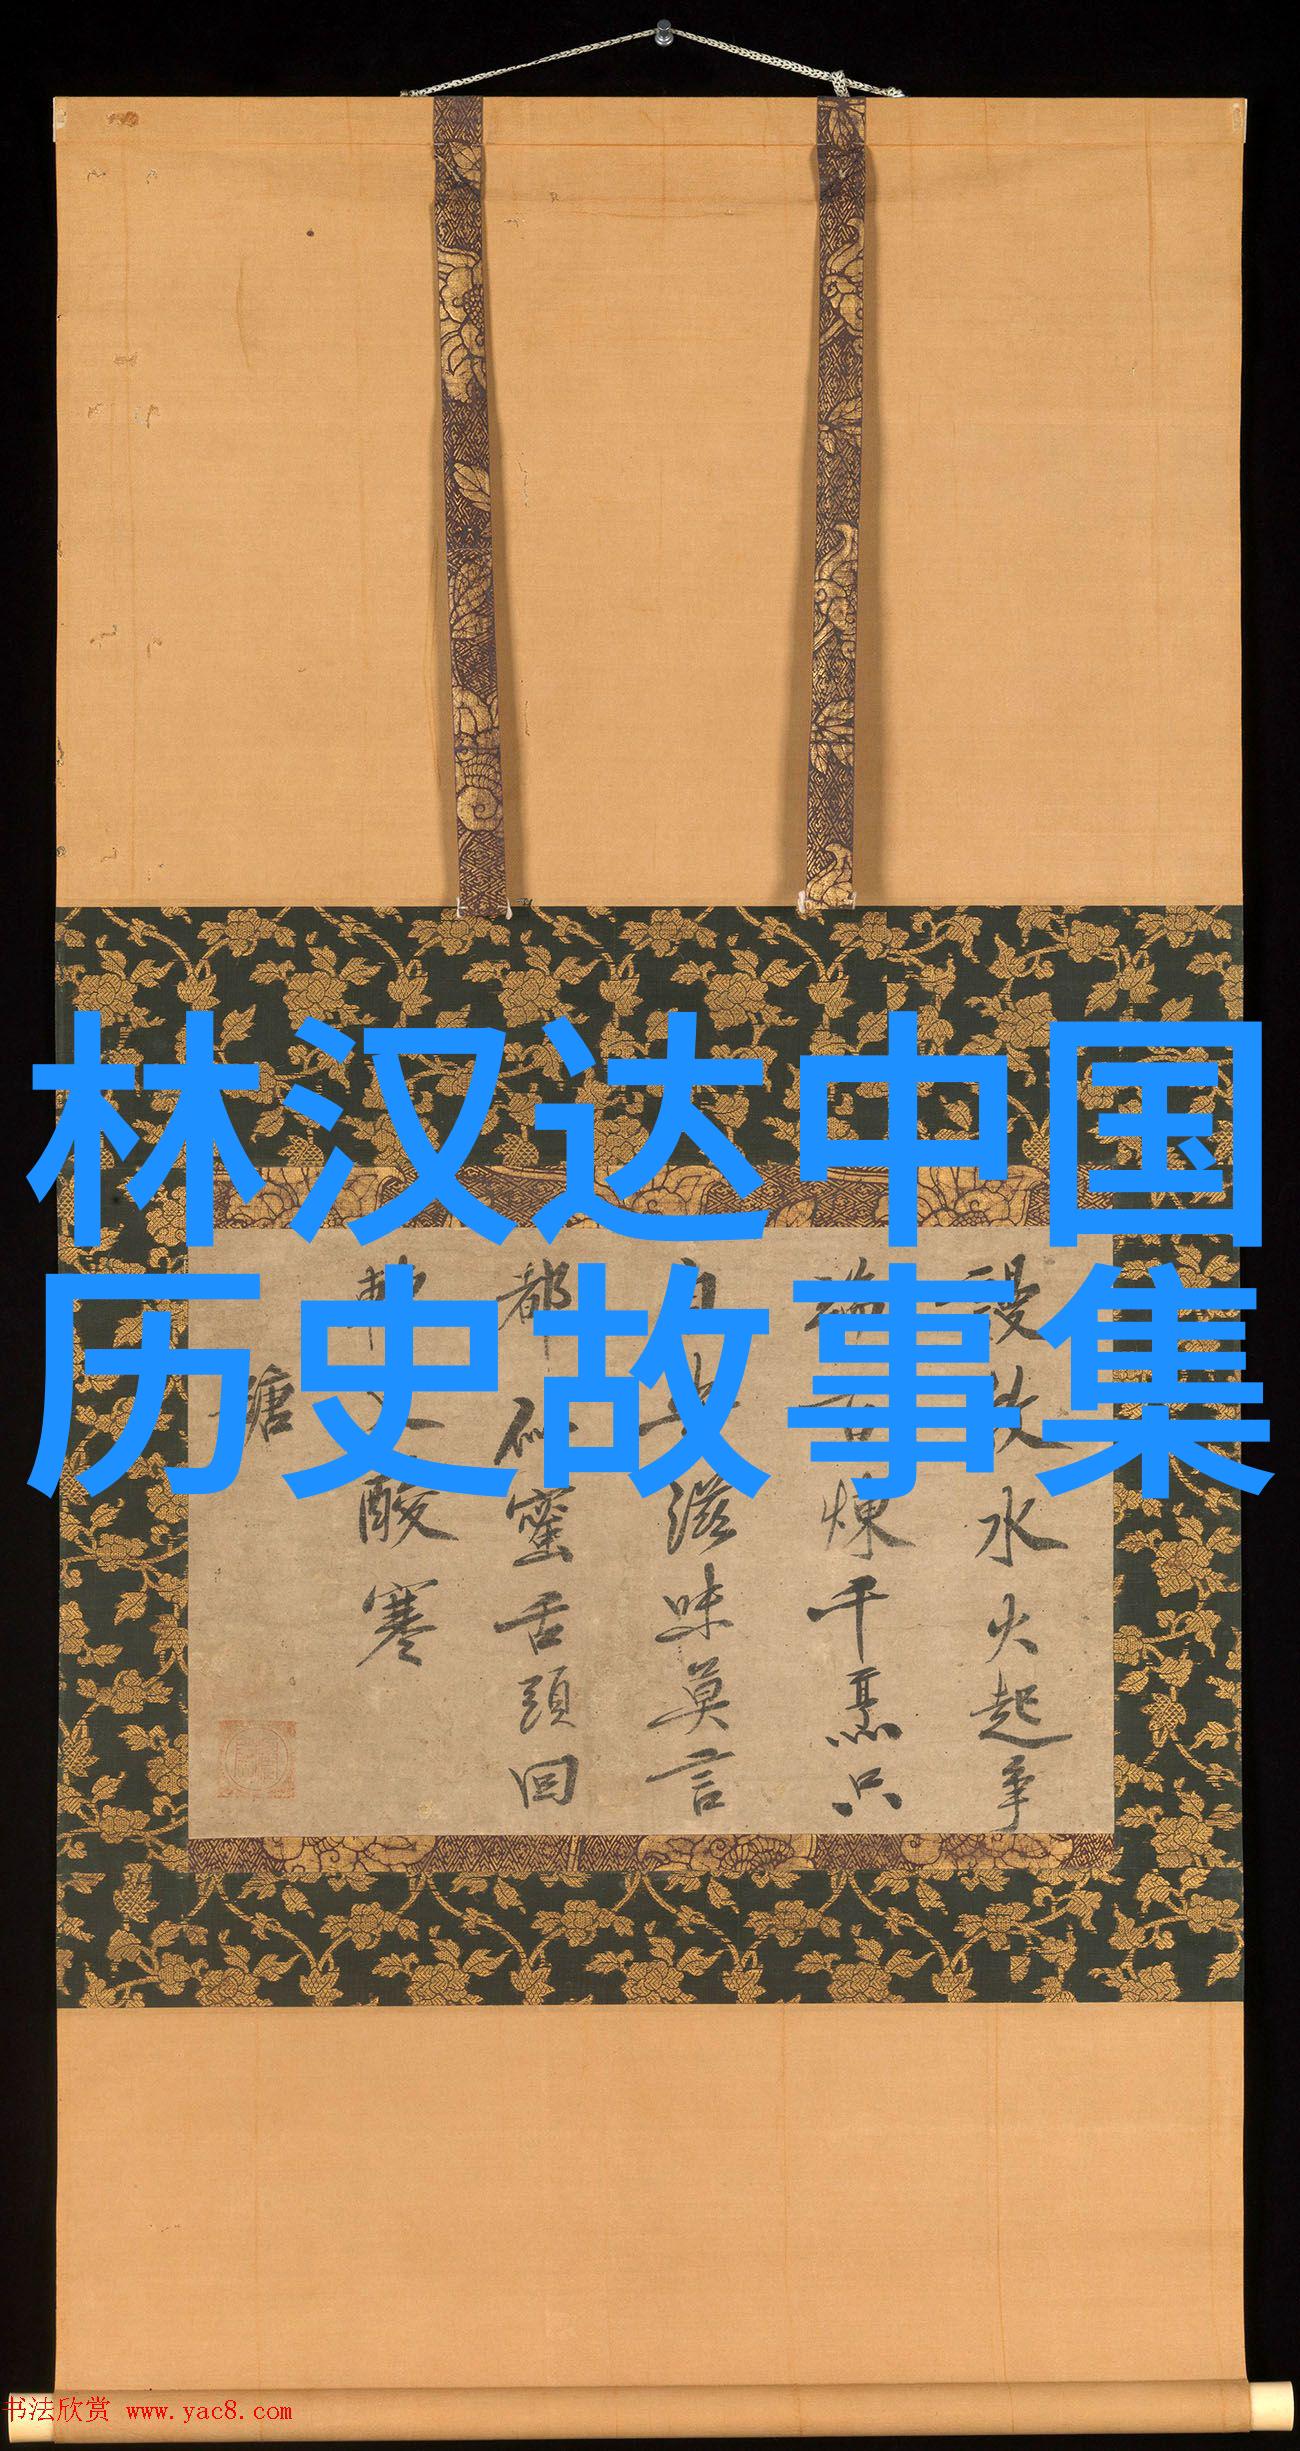 林汉达中国
历史故事集
水火起爭
煉千烹只
滋味莫言
都似蜜舌頭回
酸寒
塘
书法欣赏 www.yac8.com